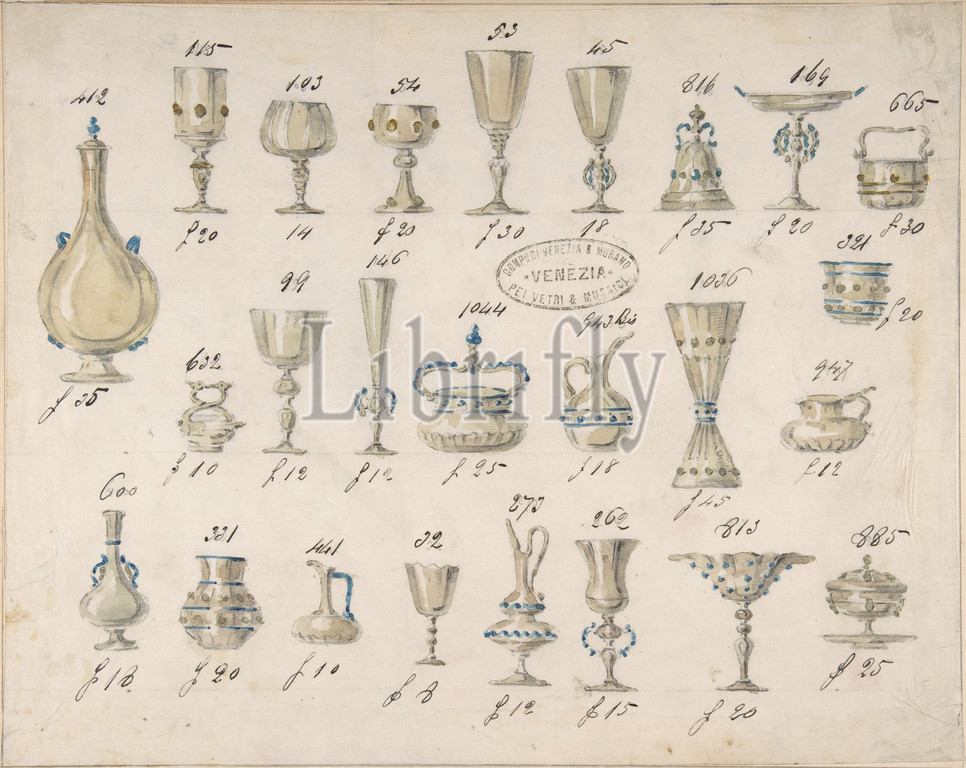 412
115
103
54
53
45
816
169
665
f 20
14
f 20
f 30
18
f 35
f 20
f 30
f 35
COMP. DI VENEZIA & MURANO
VENEZIA
PEI VETRI & MUSAICI
321
f 20
632
99
146
1044
943 Bis
1036
947
f 10
f 12
f 12
f 25
f 18
f 45
f 12
Librifly
600
331
441
32
873
262
813
885
f 18
f 20
f 10
f 8
f 12
f 15
f 20
f 25